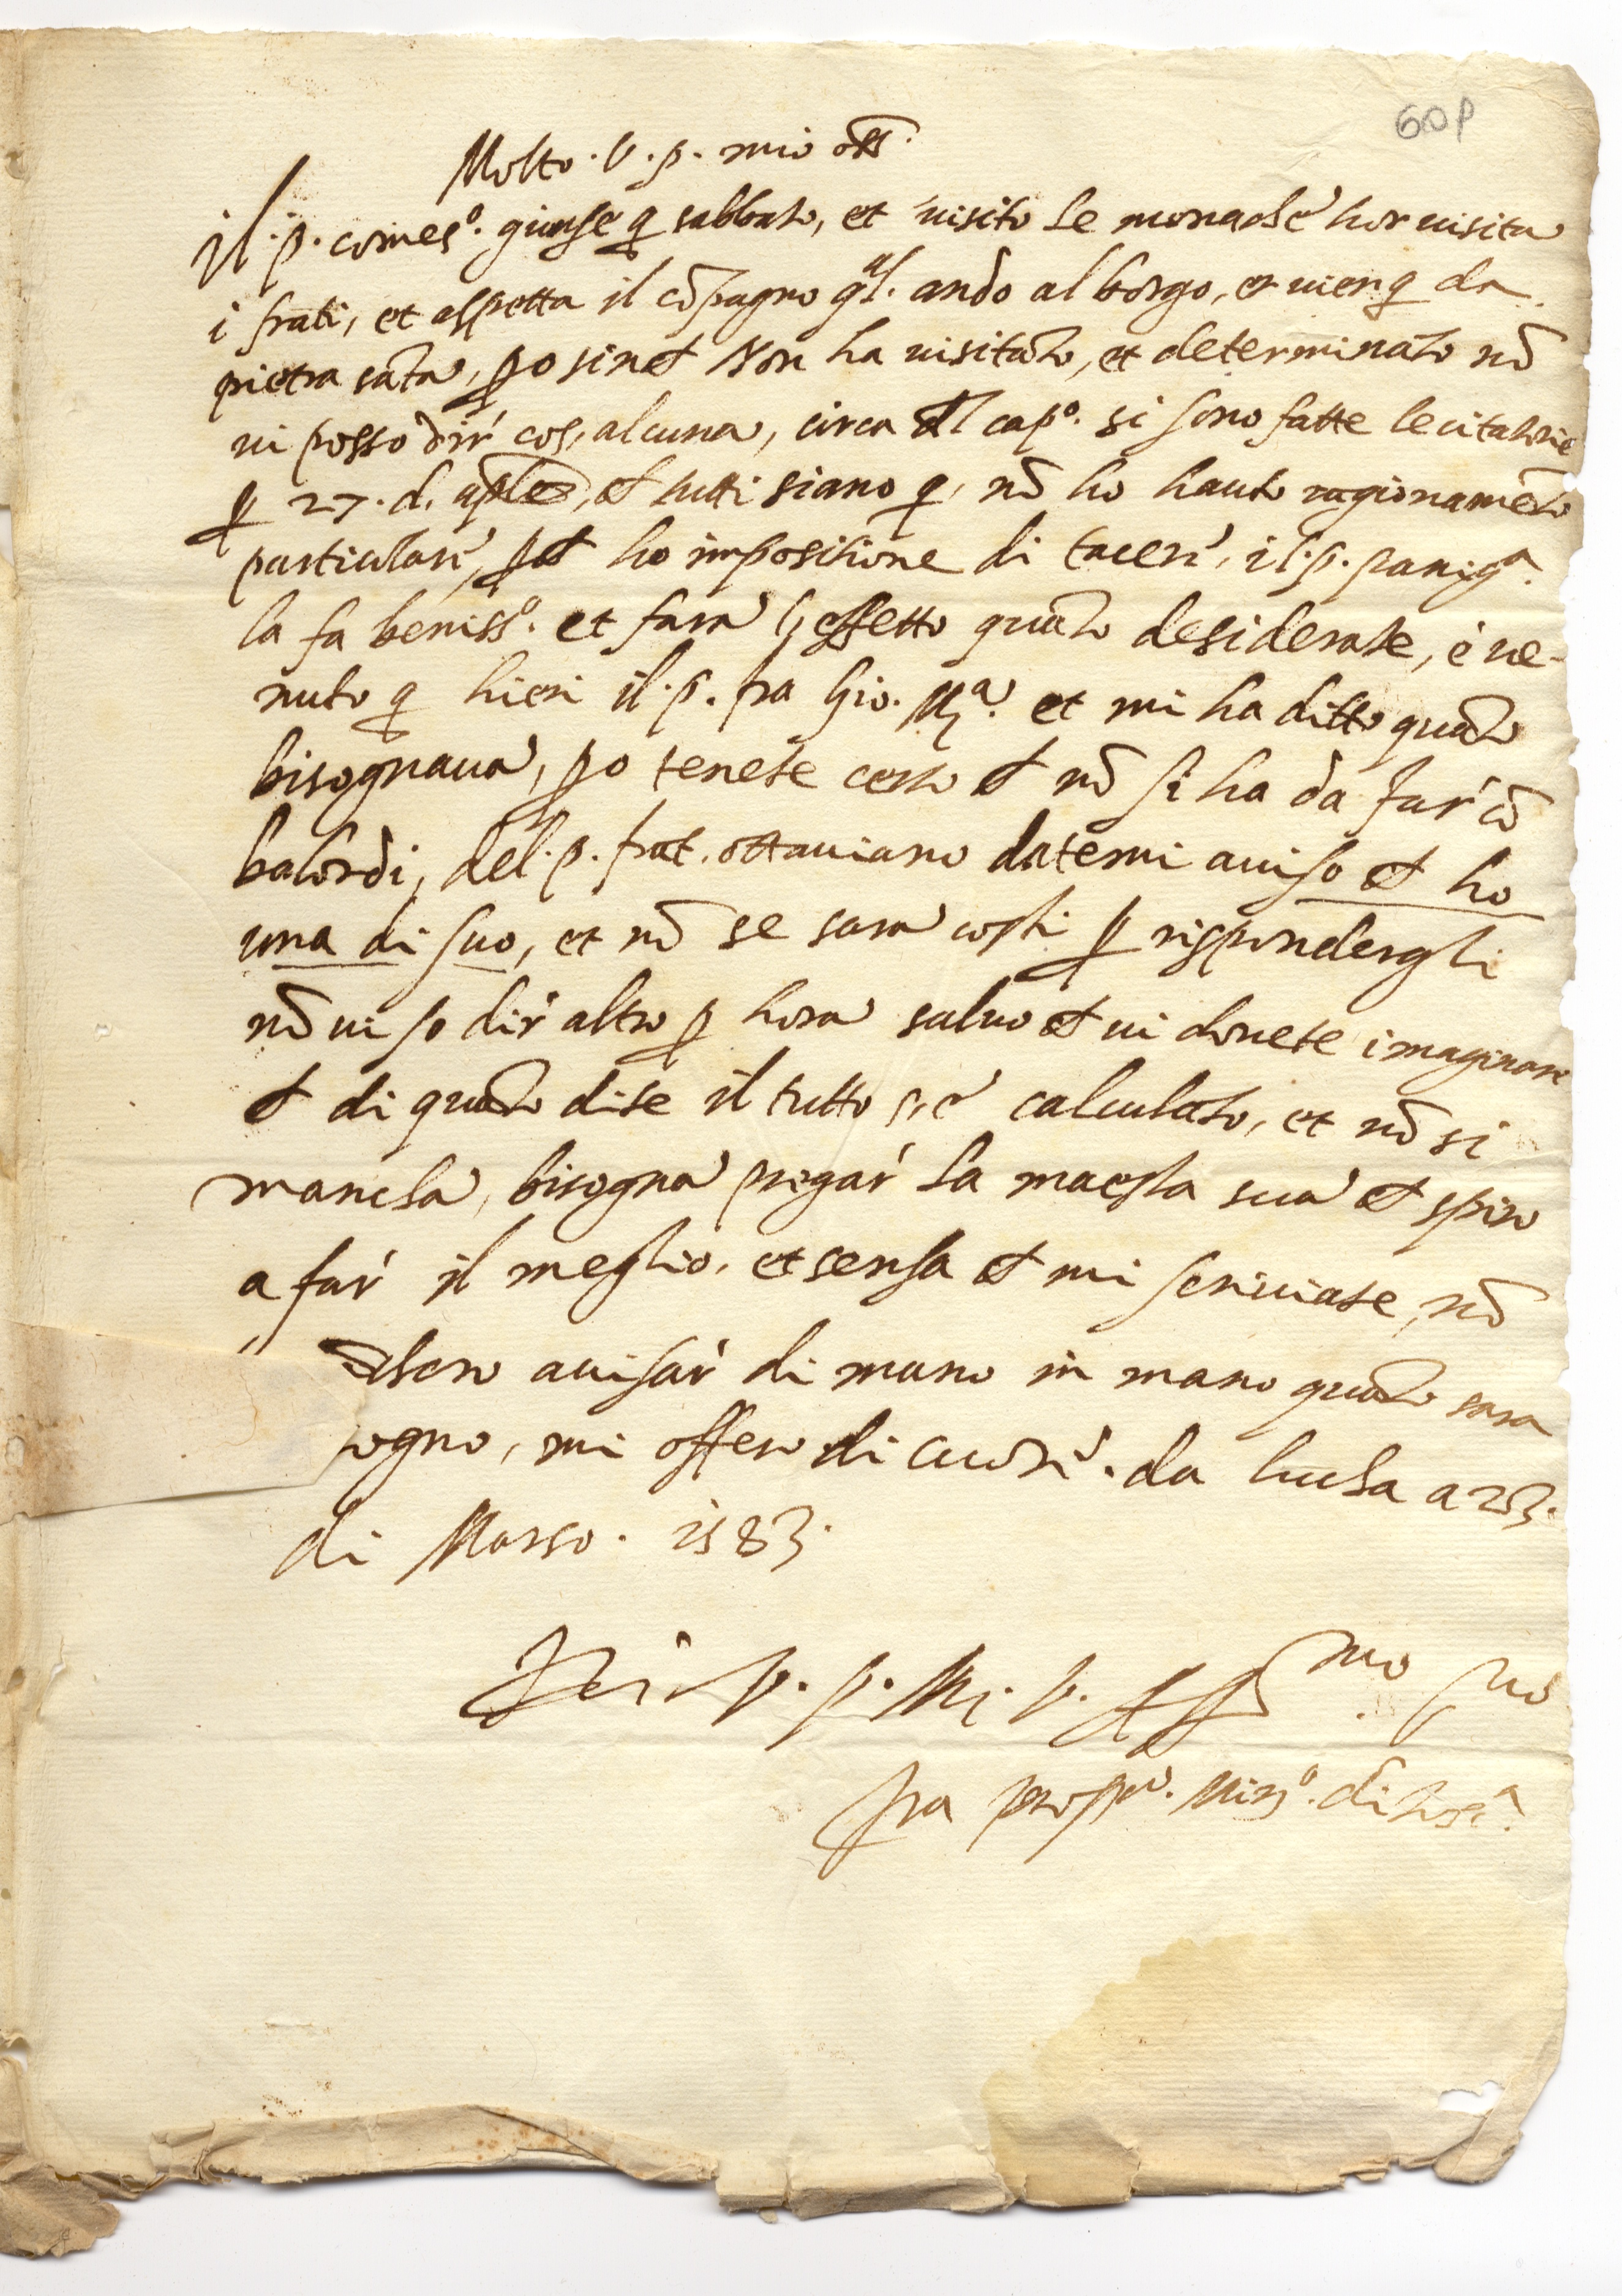 60P
Molto . V . p . mio oss.
Il . p . comes.º giunse q sabbato, et visito le monache hor visita
i frati, et aspetta il cõpagno qal. andò al borgo, et vien q da
pietra sãta, po sin ch Non ha visitato, et determinato nõ
vi posso dir cos, alcuna, circa Al capº. si sono fatte le citatorie
p 27 . d. aple, ch tutti siano q, nõ ho hauto ragionamẽto
particulare, pch ho impositione di tacere, il . p . panigª.
la fa benissº. et fara l effetto quãto desiderate, è ve-
nuto q hieri il . p . fra Gio . Mª. et mi ha ditto quãto
bisognava, po tenete certo ch nõ si ha da far cõ
balordi, del . p . frat . ottaviano datemi aviso ch ho
una di suo, et nõ se sara costi p rispondergli
nõ vi so dir altro p hora salvo ch vi dovete imaginare
ch di quãto dite il tutto s,è calculato, et nõ si
mancha, bisogna pregar la maesta sua ch spiro
a far il meglio, et sensa ch mi scriviate, nõ
avisar di mano in mano quãto sara
ogno, mi offero di cuore . da lucha a 23 .
di Marso . 1583 .
Di V . p . M . V . Affmo suo
fra . Minº . di